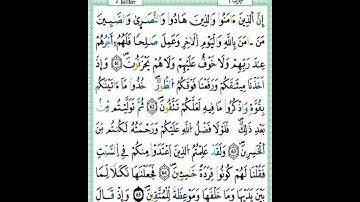 إِنَّ ٱلَّذِينَ ءَامَنُوا۟ وَٱلَّذِينَ هَادُوا۟ وَٱلنَّصَـٰرَىٰ وَٱلصَّـٰبِـِٔينَ
مَنْ ءَامَنَ بِٱللَّهِ وَٱلْيَوْمِ ٱلْـَٔاخِرِ وَعَمِلَ صَـٰلِحًا فَلَهُمْ أَجْرُهُمْ
عِندَ رَبِّهِمْ وَلَا خَوْفٌ عَلَيْهِمْ وَلَا هُمْ يَحْزَنُونَ ٦٢ وَإِذْ
أَخَذْنَا مِيثَـٰقَكُمْ وَرَفَعْنَا فَوْقَكُمُ ٱلطُّورَ خُذُوا۟ مَآ ءَاتَيْنَـٰكُم
بِقُوَّةٍ وَٱذْكُرُوا۟ مَا فِيهِ لَعَلَّكُمْ تَتَّقُونَ ٦٣ ثُمَّ تَوَلَّيْتُم مِّنۢ
بَعْدِ ذَٰلِكَ فَلَوْلَا فَضْلُ ٱللَّهِ عَلَيْكُمْ وَرَحْمَتُهُۥ لَكُنتُم مِّنَ
ٱلْخَـٰسِرِينَ ٦٤ وَلَقَدْ عَلِمْتُمُ ٱلَّذِينَ ٱعْتَدَوْا۟ مِنكُمْ فِى ٱلسَّبْتِ
فَقُلْنَا لَهُمْ كُونُوا۟ قِرَدَةً خَـٰسِـِٔينَ ٦٥ فَجَعَلْنَـٰهَا نَكَـٰلًا لِّمَا
بَيْنَ يَدَيْهَا وَمَا خَلْفَهَا وَمَوْعِظَةً لِّلْمُتَّقِينَ ٦٦ وَإِذْ قَالَ